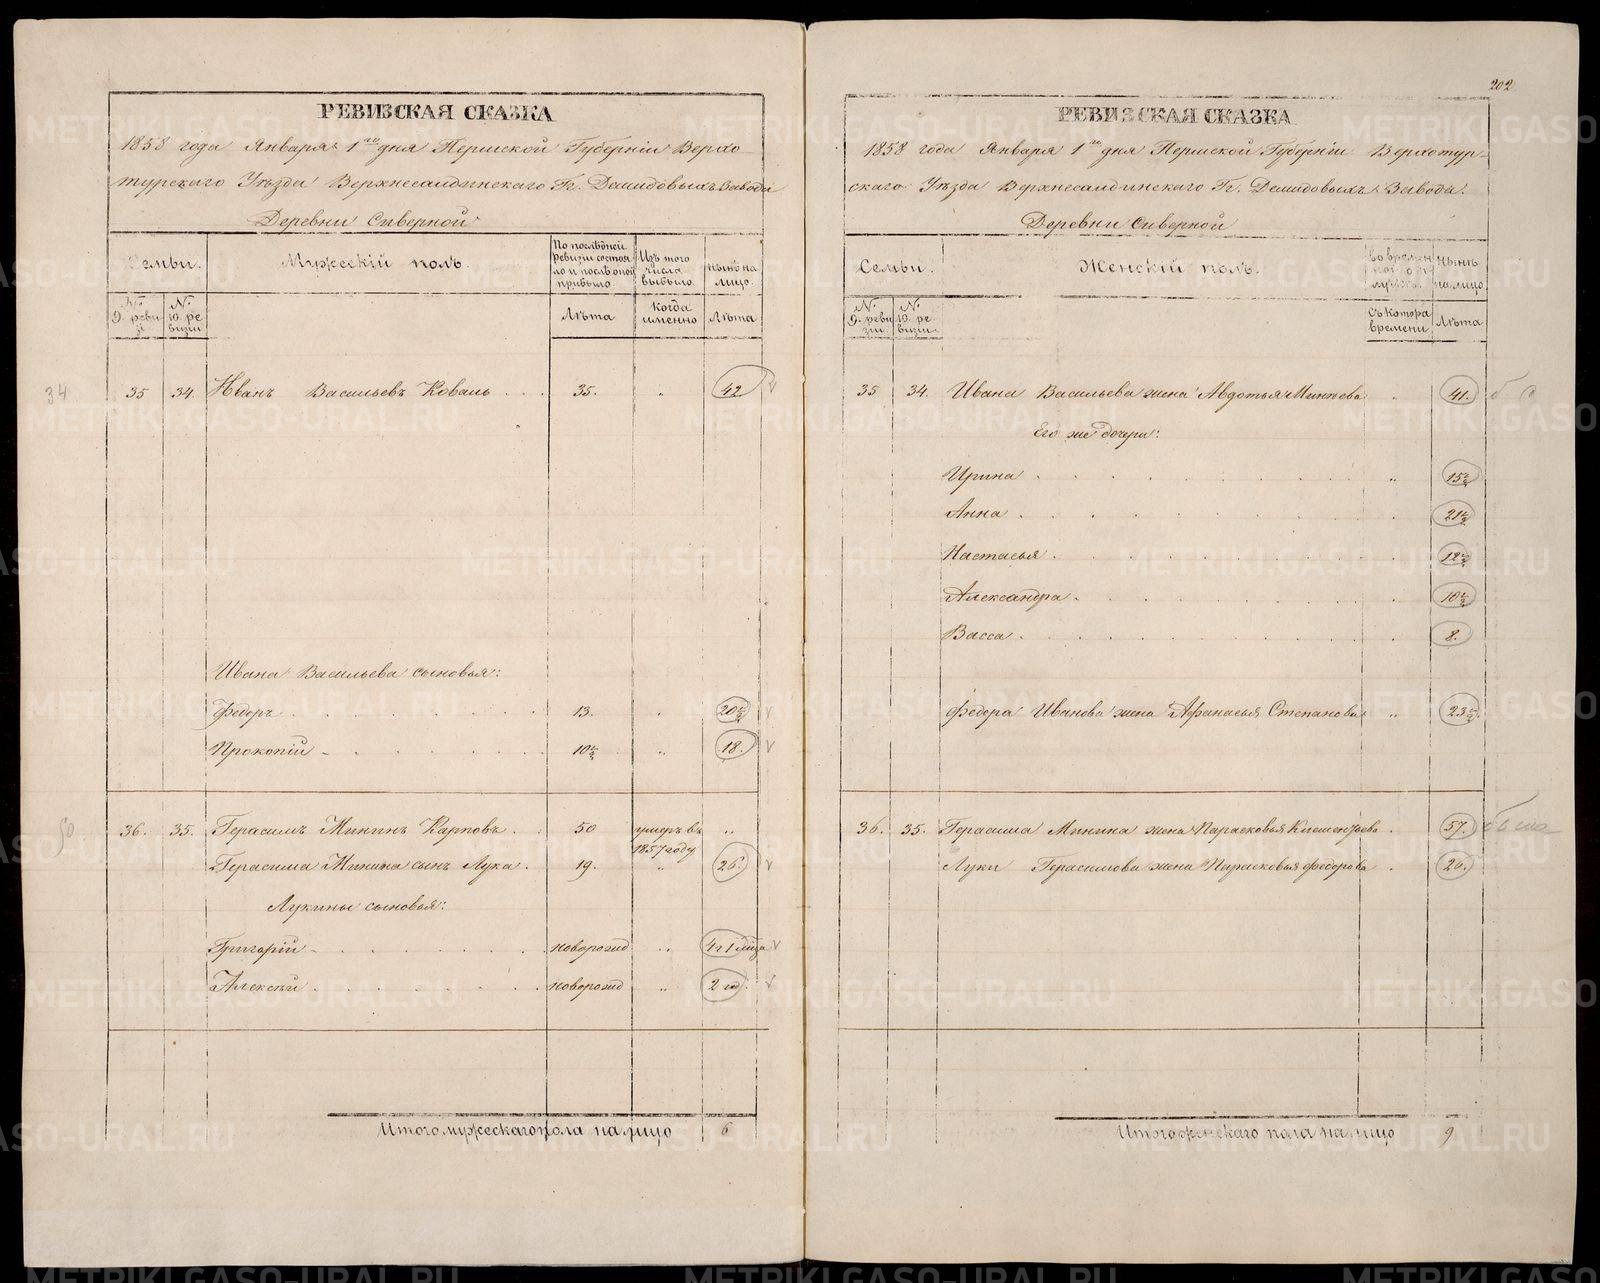 202
РЕВИЗСКАЯ СКАЗКА
1858 года Января 1го дня Пермской Губерніи Верхо
турскаго Уѣзда Верхнесалдинскаго Гг. Демидовыхъ Завода
Деревни Сѣверной
Семьи. Мужескій полъ.
По послѣдней ревизіи состояло и послѣ оной прибыло.
Изъ того числа выбыло.
Нынѣ на лицо.
N. 9. ревизі
N. 10. ревизіи
Лѣта
Когда именно
Лѣта
34
35 34. Иванъ Васильевъ Коваль . . . 35. „ 42
Ивана Васильева сыновья:
Федоръ 13. „ 20½
Прокопій 10½ „ 18.
36. 35. Герасимъ Мининъ Карповъ . 50 умеръ въ 1857 году „
Герасима Минина сынъ Лука . 19. „ 26.
Лукины сыновья:
Григорій новорожд „
Алексѣй новорожд „
Итого мужескаго пола на лицо 6
РЕВИЗСКАЯ СКАЗКА
1858 года Января 1го дня Пермской Губерніи Верхотур-
скаго Уѣзда Верхнесалдинскаго Гг. Демидовыхъ Завода.
Деревни Сѣверной
Семьи. Женскій полъ.
Нынѣ на лицо
N. 9. ревизіи
N. 10. ревизіи.
Съ котора времени
Лѣта
35 34. Ивана Васильева жена Авдотья 41.
Его же дочери:
Ирина „ 15½
Анна „ 21½
Настасья „ 12½
Александра 10½
Васса 8.
Федора Иванова жена Афанасья Степанова „ 23½
36. 35. Герасима Минина жена Парасковья Клементьева . 57.
Луки Герасимова жена Парасковья Федорова . 26.
Итого женскаго пола на лицо 9
METRIKI.GASO-URAL.RU